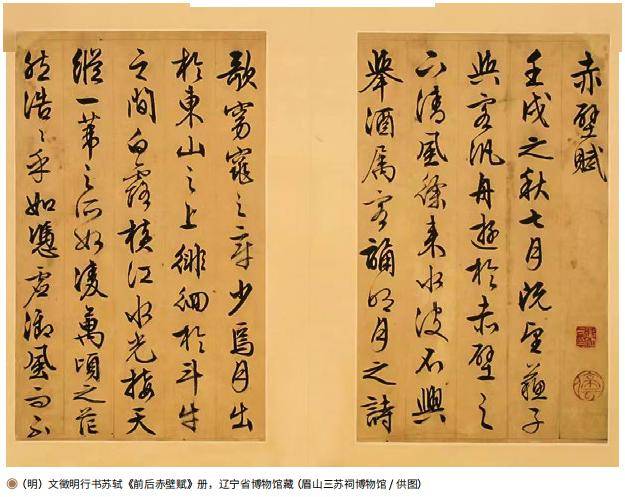 赤壁賦
壬戌之秋七月既望蘇子
與客汎舟遊於赤壁之
下清風徐来水波不興
舉酒属客誦明月之詩
歌窈窕之章少焉月出
於東山之上徘徊於斗牛
之間白露横江水光接天
縱一葦之所如凌萬頃之茫
然浩〻乎如憑虚御風而不
（明）文徵明行书苏轼《前后赤壁赋》册，辽宁省博物馆藏（眉山三苏祠博物馆 / 供图）